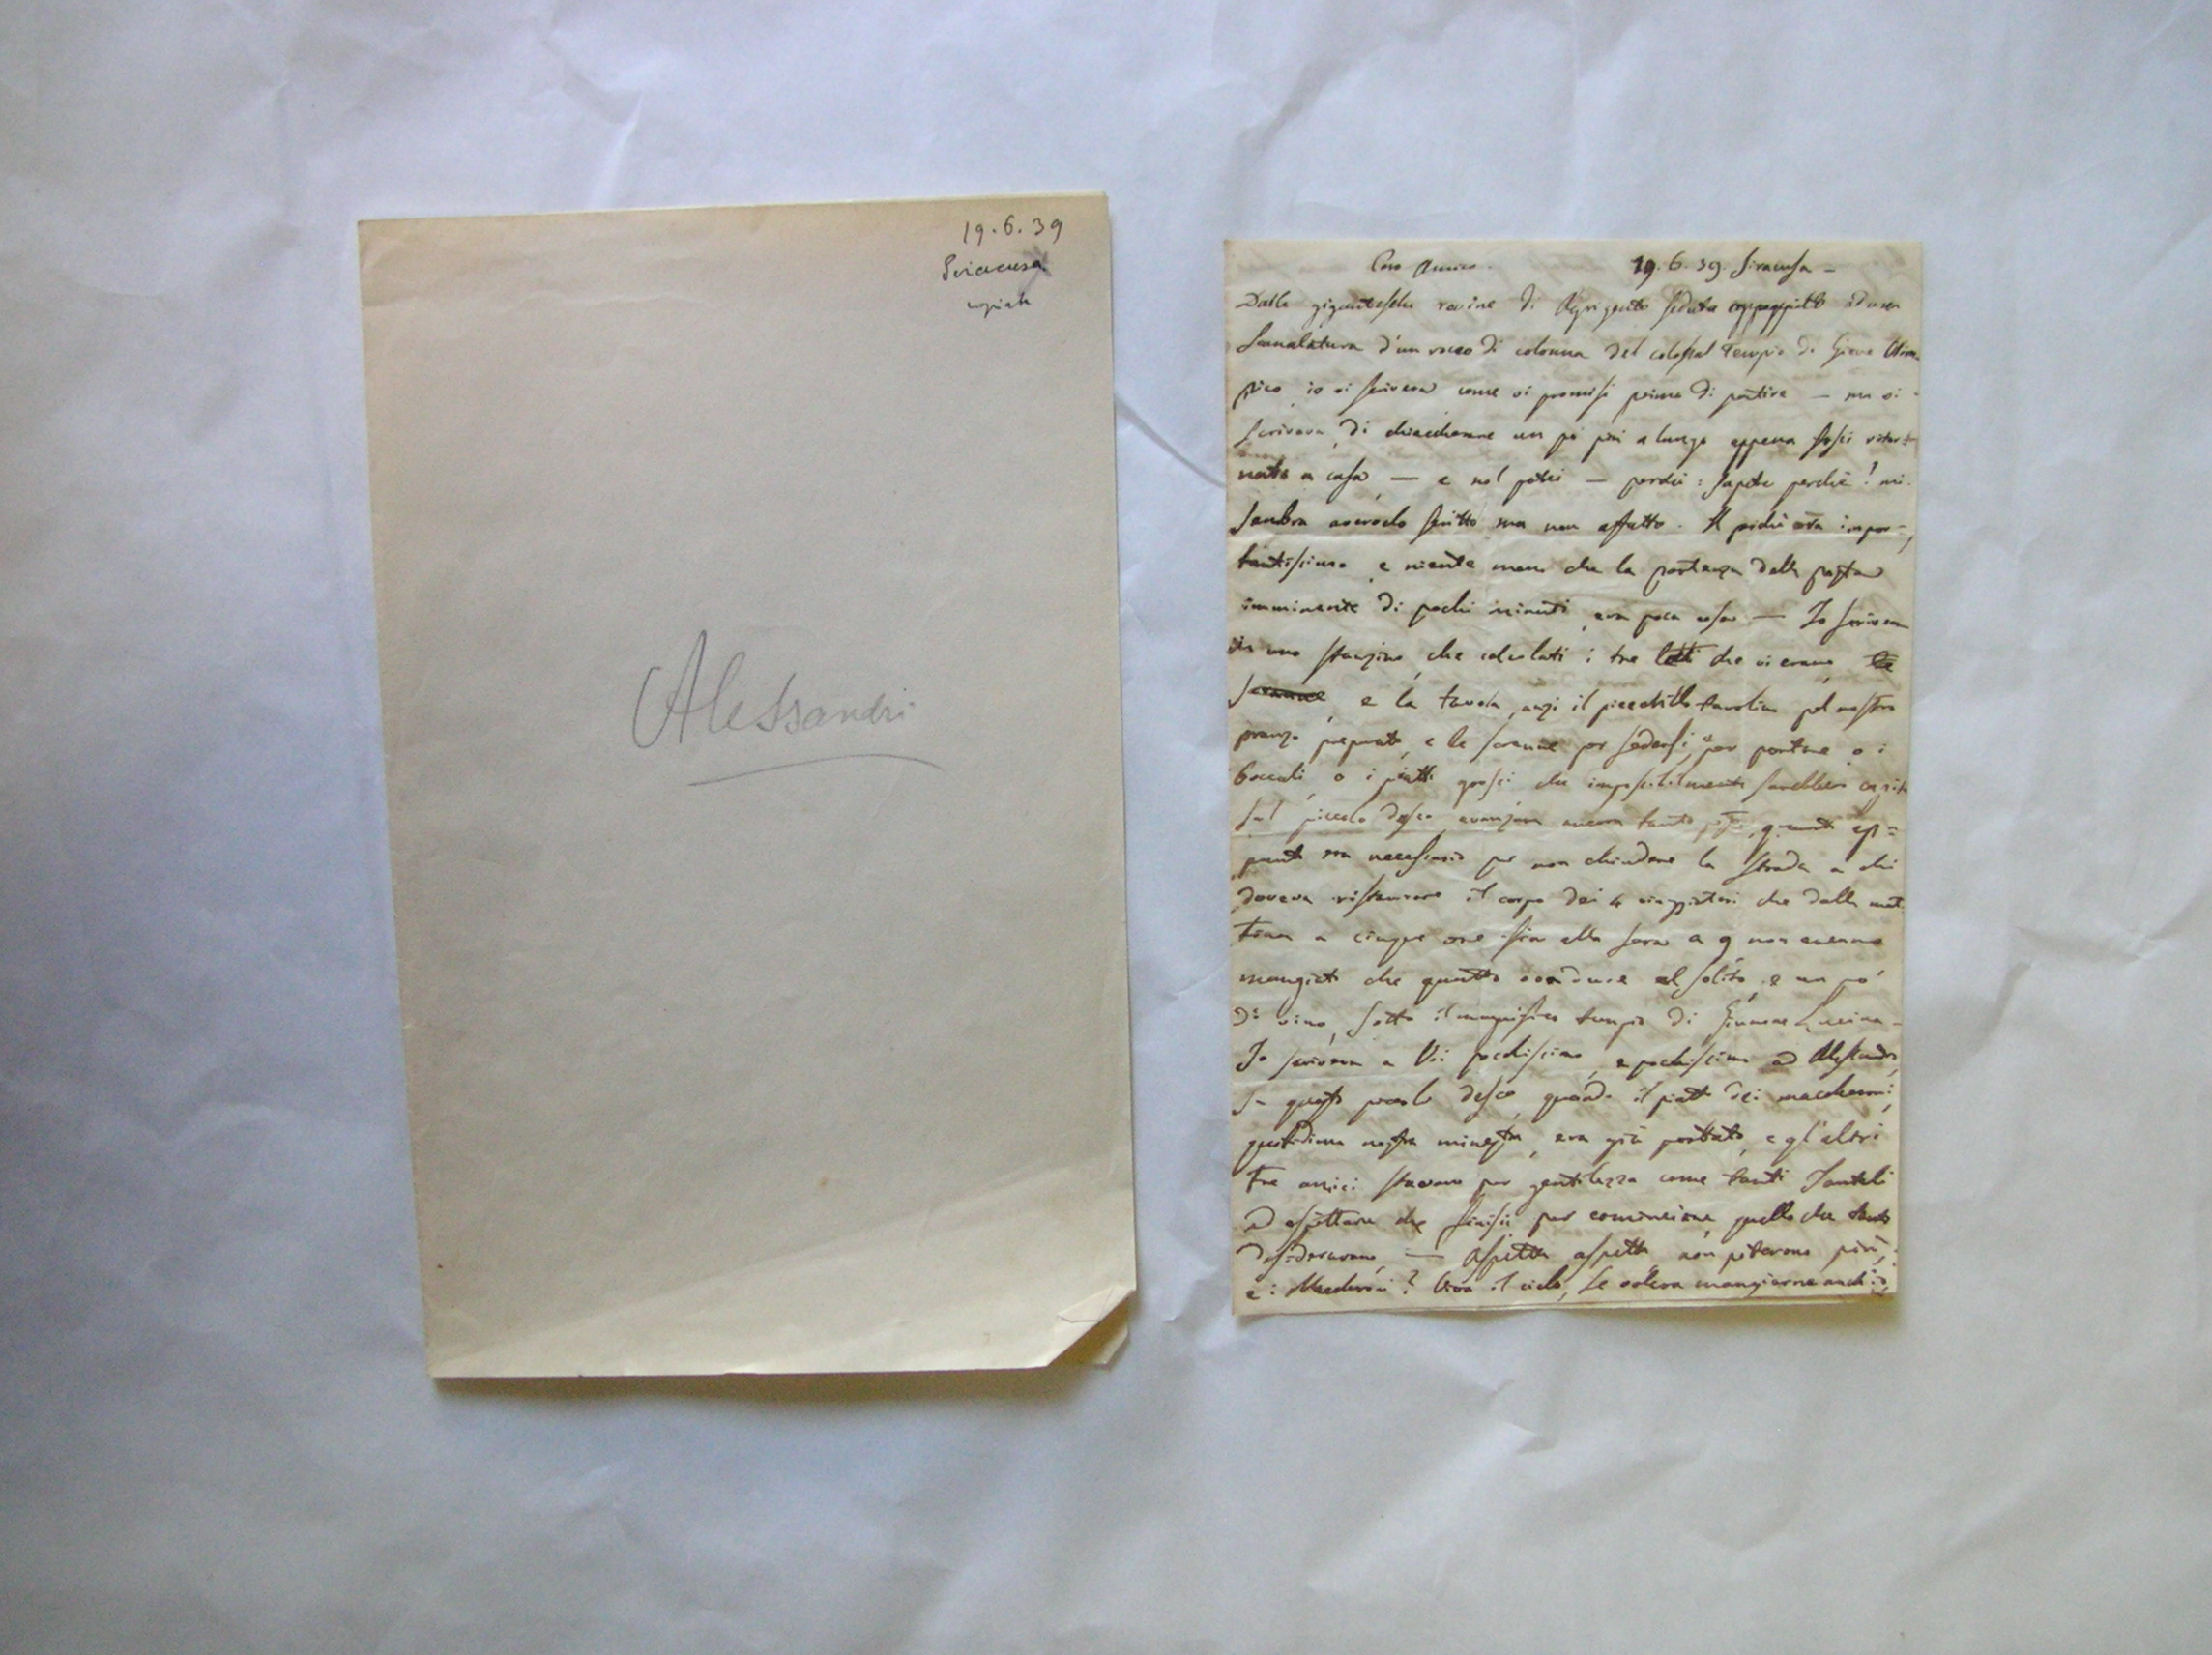 19.6.39
Siracusa
copiata
Alessandri
Caro Amico. 19.6.39. Siracusa —
Dalle gigantesche rovine di Agrigento seduto appoggiato ad una
scanalatura d'un rocco di colonna del colossal Tempio di Giove Olim
pico, io vi scriveva come vi promisi prima di partire — ma vi
scriveva di chiacherare un pò più a lungo appena fossi ritor=
nato a casa, — e nol potei — perchè: sapete perchè! mi
sembra avervelo scritto ma non affatto. Il perchè era impor=
tantissimo e niente meno che la partenza della posta
imminente di pochi minuti era poca cosa — Io scriveva
in uno stanzino, che calcolati i tre letti che vi erano, le
scranne, e la tavola, anzi il piccolo tavolino pel nostro
pranzo preparato, e le scranne per sedersi, per portare o i
boccali, o i piatti grossi che impossibilmente sarebbero capiti
sul piccolo desco avanzava ancora tanto quanto ap=
punto era necessario per non chiudere la strada a chi
doveva ristaurare il corpo dei 4 viaggiatori che dalla mat
tina a cinque ore fin alla sera a 9 non aveano
mangiato che quattro ova dure al solito e un pò
di vino, sotto il magnifico tempio di Giunone Lucina —
Io scriveva a Voi pochissimo, e pochissimo ad Alessandri,
su questo piccolo desco, quando il piatto dei maccheroni,
quotidiana nostra minestra, era già portato, e gl'altri
tre amici stavano per gentilezza come tanti Tantali
ad aspettare che finissi per cominciare quello che tanto
desideravano, — Aspetta aspetta non poterono più,
e i Maccheroni? Viva il cielo, se voleva mangiarne anch'io,